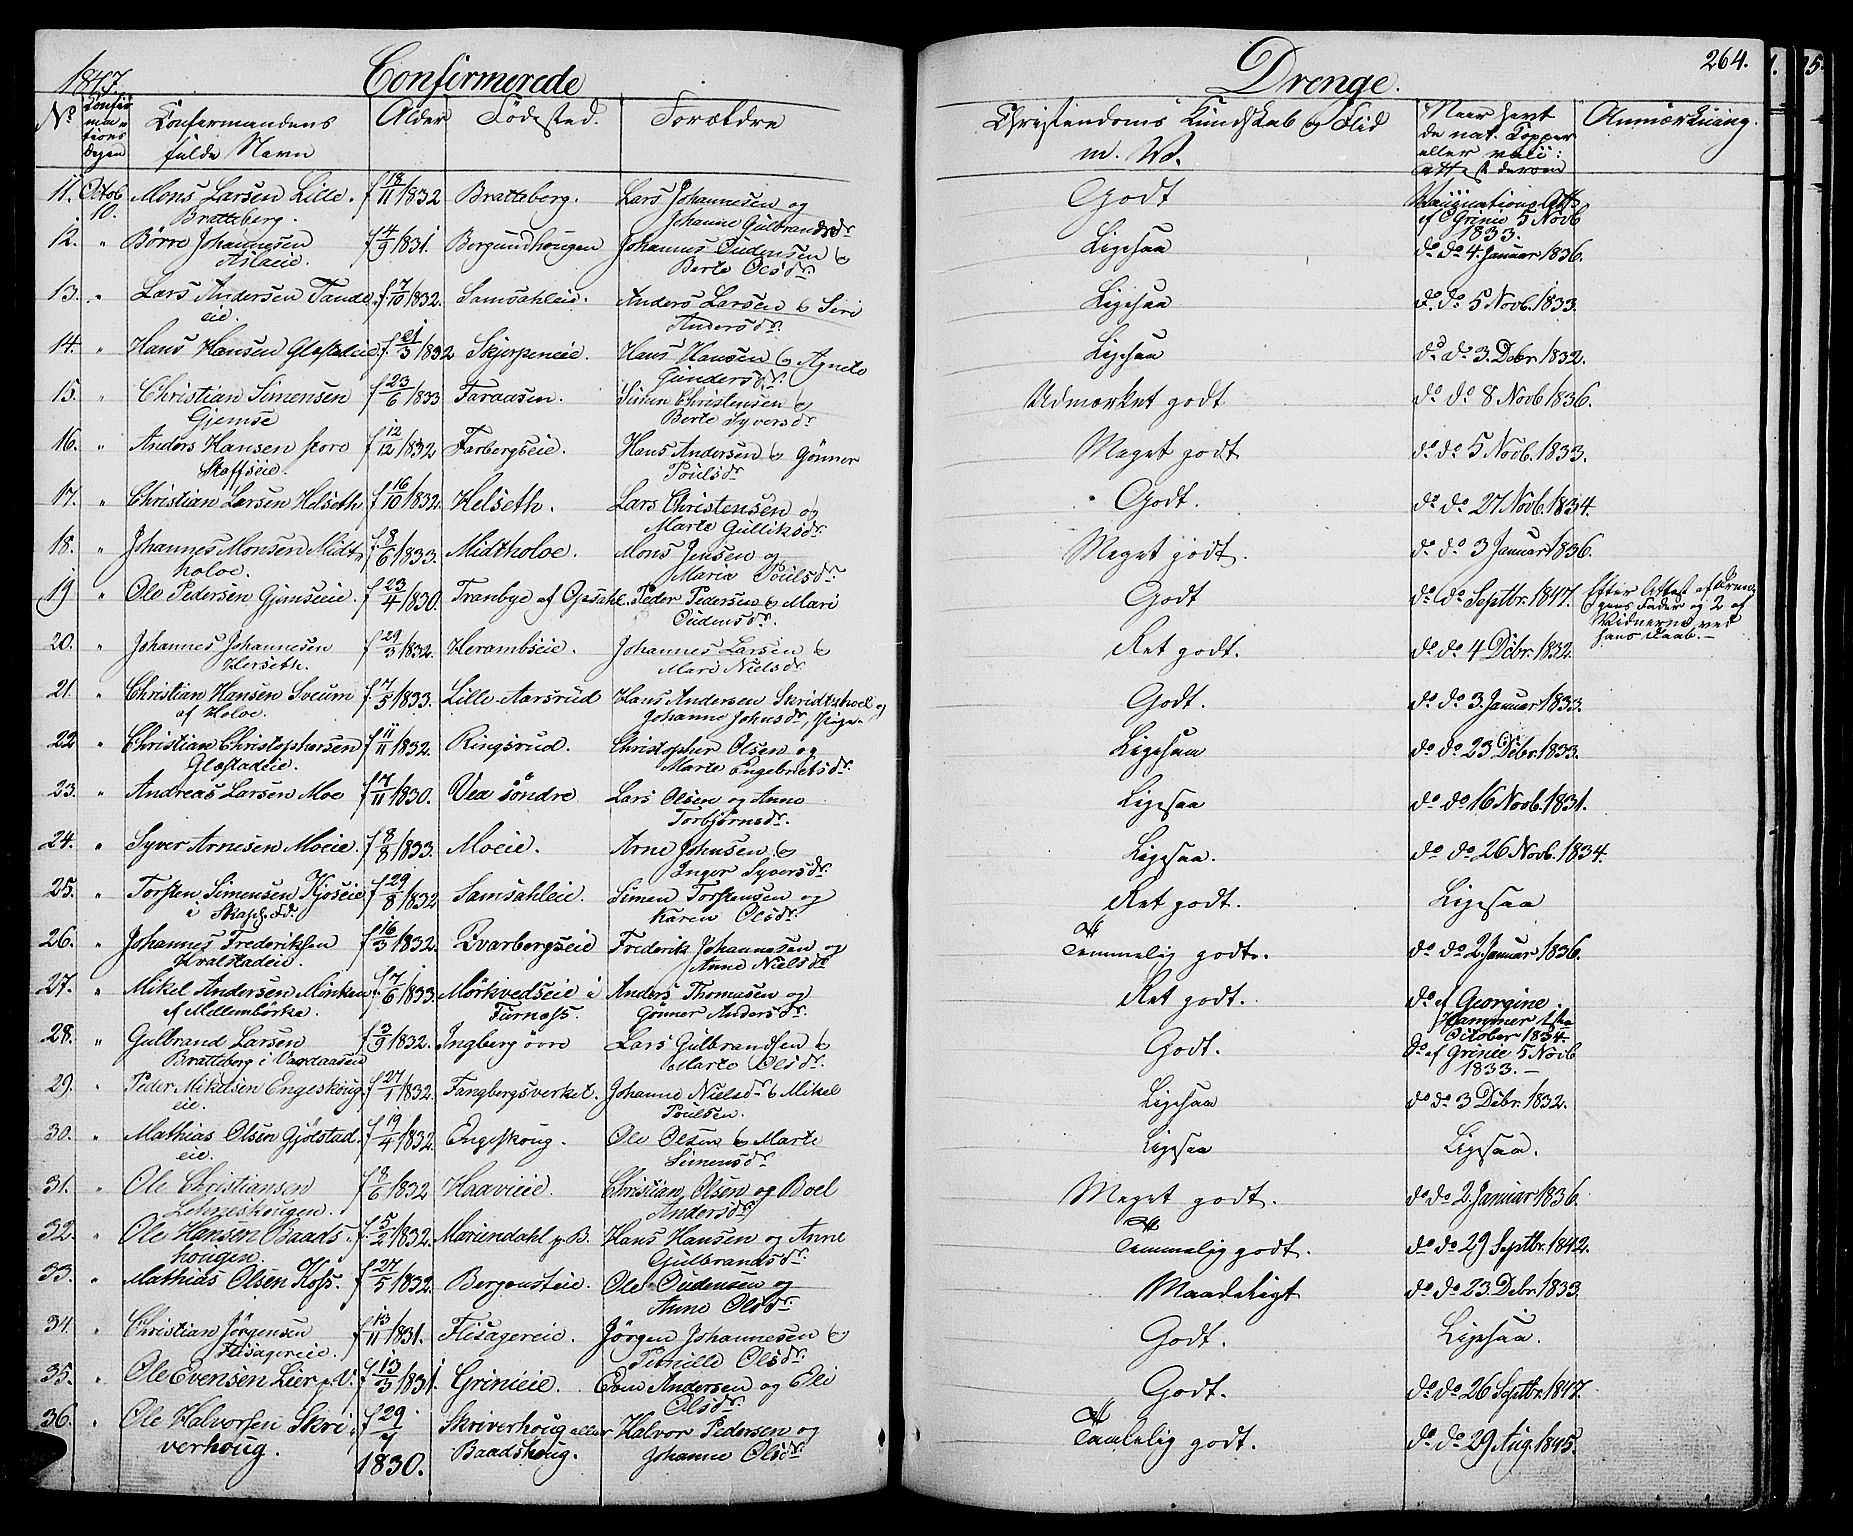 1847. Confirmerede Drenge. 264.
No Confir mations dagen Confirmandens fulde Navn Alder Födested. Forældre Christendoms Kundskab og Flid m. V. Naar havt de nat. Kopper eller vacc: attest derom Anmærkning.
11. Octob 10. Mons Larsen Lille Bratteberg. f 18/11 1832 Bratteberg. Lars Johannesen og Johanne Gulbrandsdr Godt Vaccinations Att. af C Grinie 5 Novb 1833.
12. " Börre Johannesen Aslaeie. f 4/9 1831. Bergundhougen Johannes Oudensen og Berte Olsdr. Ligesaa do do 4. Januar 1836.
13. " Lars Andersen Tande eie. f 7/10 1832. Samsahleie. Anders Larsen og Siri Andersdr. Ligesaa do do 5 Novb. 1833.
14. " Hans Hansen Glæstadeie f 21/3 1832 Skjerpeneie. Hans Hansen og Agnete Gundersdr. Ligesaa do do 3. Debr 1832.
15. " Christian Simensen Gjemse f 23/6 1833 Taraasen. Simen Christensen og Berte Syversdr Udmærket godt do do 8 Novb 1836.
16. " Anders Hansen store Skaffseie. f 12/12 1832 Farbergseie. Hans Andersen og Gönner Poulsdr Meget godt do do 5 Novb. 1833.
17. " Christian Larsen Helseth f 16/10 1832. Helseth. Lars Christensen og Marte Gulliksdr. Godt. do do 27 Novb. 1834.
18. " Johannes Monsen Midt holoe. f 8/6 1833. Midtholoe. Mons Jensen og Maria Poulsdr. Meget godt. do do 3 Januar 1836.
19 " Ole Pedersen Gjimseeie. f 23/4 1830. Tranbye af Opsahl. Peder Pedersen og Mari Oudensdr. Godt do do Septbr. 1847. Efter Attest af Dren gens Fader og 2 af Vidnerne ved hans Daab.
20. " Johannes Johannesen Herseth. f 29/3 1832. Herambseie. Johannes Larsen og Mari Nielsdr Ret godt. do do 4 Debr. 1832.
21. " Christian Hansen Sveum af Holoe. f 7/5 1833. Lille Aarsrud Hans Andersen Skridtshoel og Johanne Johnsdr, Pige. Godt. do do 3. Januar 1833.
22 " Christian Christophersen Glæstadeie. f 11/11 1832. Ringsrud. Christopher Olsen og Marte Engebretsdr. Ligesaa do do 23 Debr. 1833.
23. " Andreas Larsen Moe f 7/11 1830. Vea söndre Lars Olsen og Anne Torbjörnsdr. Ligesaa do do 16 Novb. 1831.
24. " Syver Arnesen Moeie. f 8/8 1833. Moeie. Arne Johnsen og Inger Syversdr. Ligesaa. do do 26 Novb. 1834.
25. " Torsten Simensen Kjoseie i f 29/8 1832 Samsahleie. Simen Torstensen og Karen Olsdr. Ret godt. Ligesaa
26. " Johannes Frederiksen Hvalstadeie. f 16/3 1832. Kvarbergseie Frederik Johannesen og Anne Nielsdr Temmelig godt. do do 2. Januar 1836.
27. " Mikel Andersen Minken af Mellembörke. f 7/6 1833. Mörkvedseie i Furness. Anders Thomasen og Gönner Andersdr. Ret godt. do af Georgine Hammer 1ste October 1834.
28. " Gulbrand Larsen Bratteberg i Vardaasen f 3/9 1832. Ingberg övre Lars Gulbrandsen og Marte Olsdr. Godt. do af Grinie 5 Novb 1833.
29. " Peder Mikelsen Engeskoug eie. f 27/1 1832. Tangbergsverket. Johanne Nielsdr og Mikel Poulsen. Ligesaa do do 3 Debr. 1832.
30. " Mathias Olsen Gjölstad eie. f 19/4 1832. Engeskoug. Ole Olsen og Marte Simensdr. Ligesaa Ligesaa.
31. " Ole Christiansen Lehneshougen. f 8/6 1832 Haavieie. Christian Olsen og Boel Andersdr Meget godt. do do 2 Januar 1836.
32. " Ole Hansen Baads hougen f 5/2 1832. Mariendahl p. B. Hans Hansen og Anne Gulbrandsdr. Temmelig godt. do do 29 Septbr. 1842.
33. " Mathias Olsen Koss. f 27/5 1832. Bergensteie. Ole Oudensen og Anne Olsdr. Maadeligt do do 23 Debr. 1833.
34. " Christian Jörgensen Flisagereie. f 13/11 1831. Flisagereie. Jörgen Johannesen og Pernille Olsdr. Godt. Ligesaa.
35. " Ole Evensen Lier p. V. f 13/3 1831. Grinieie. Even Andersen og Oli Olsdr. Godt. do do 26 Septbr. 1847.
36. " Ole Halvorsen Skri verhoug. f 29/7 1830. Skriverhoug eller Baadshoug. Halvor Pedersen og Johanne Olsdr Taalelig godt. do do 29 Aug. 1845.